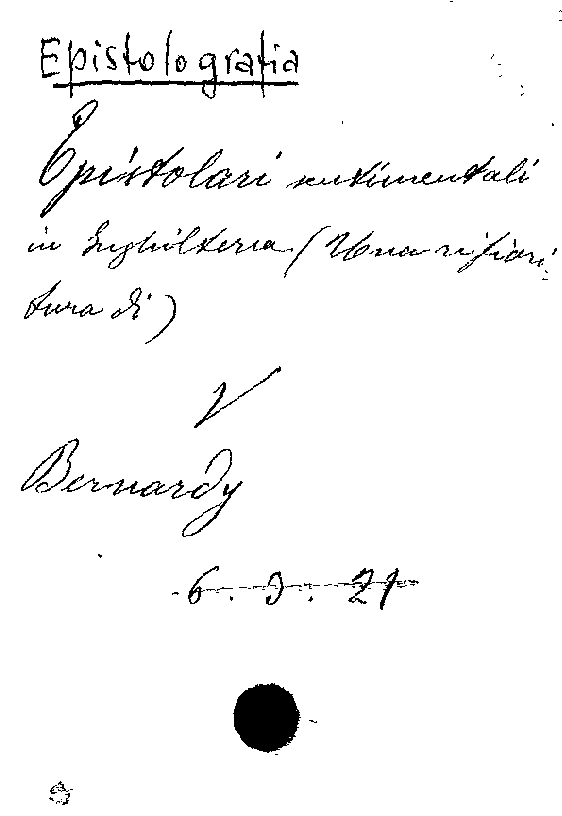 Epistolografia
Epistolari sentimentali
in Inghilterra (Una rifiori-
tura di)
V
Bernardy
6.3.21